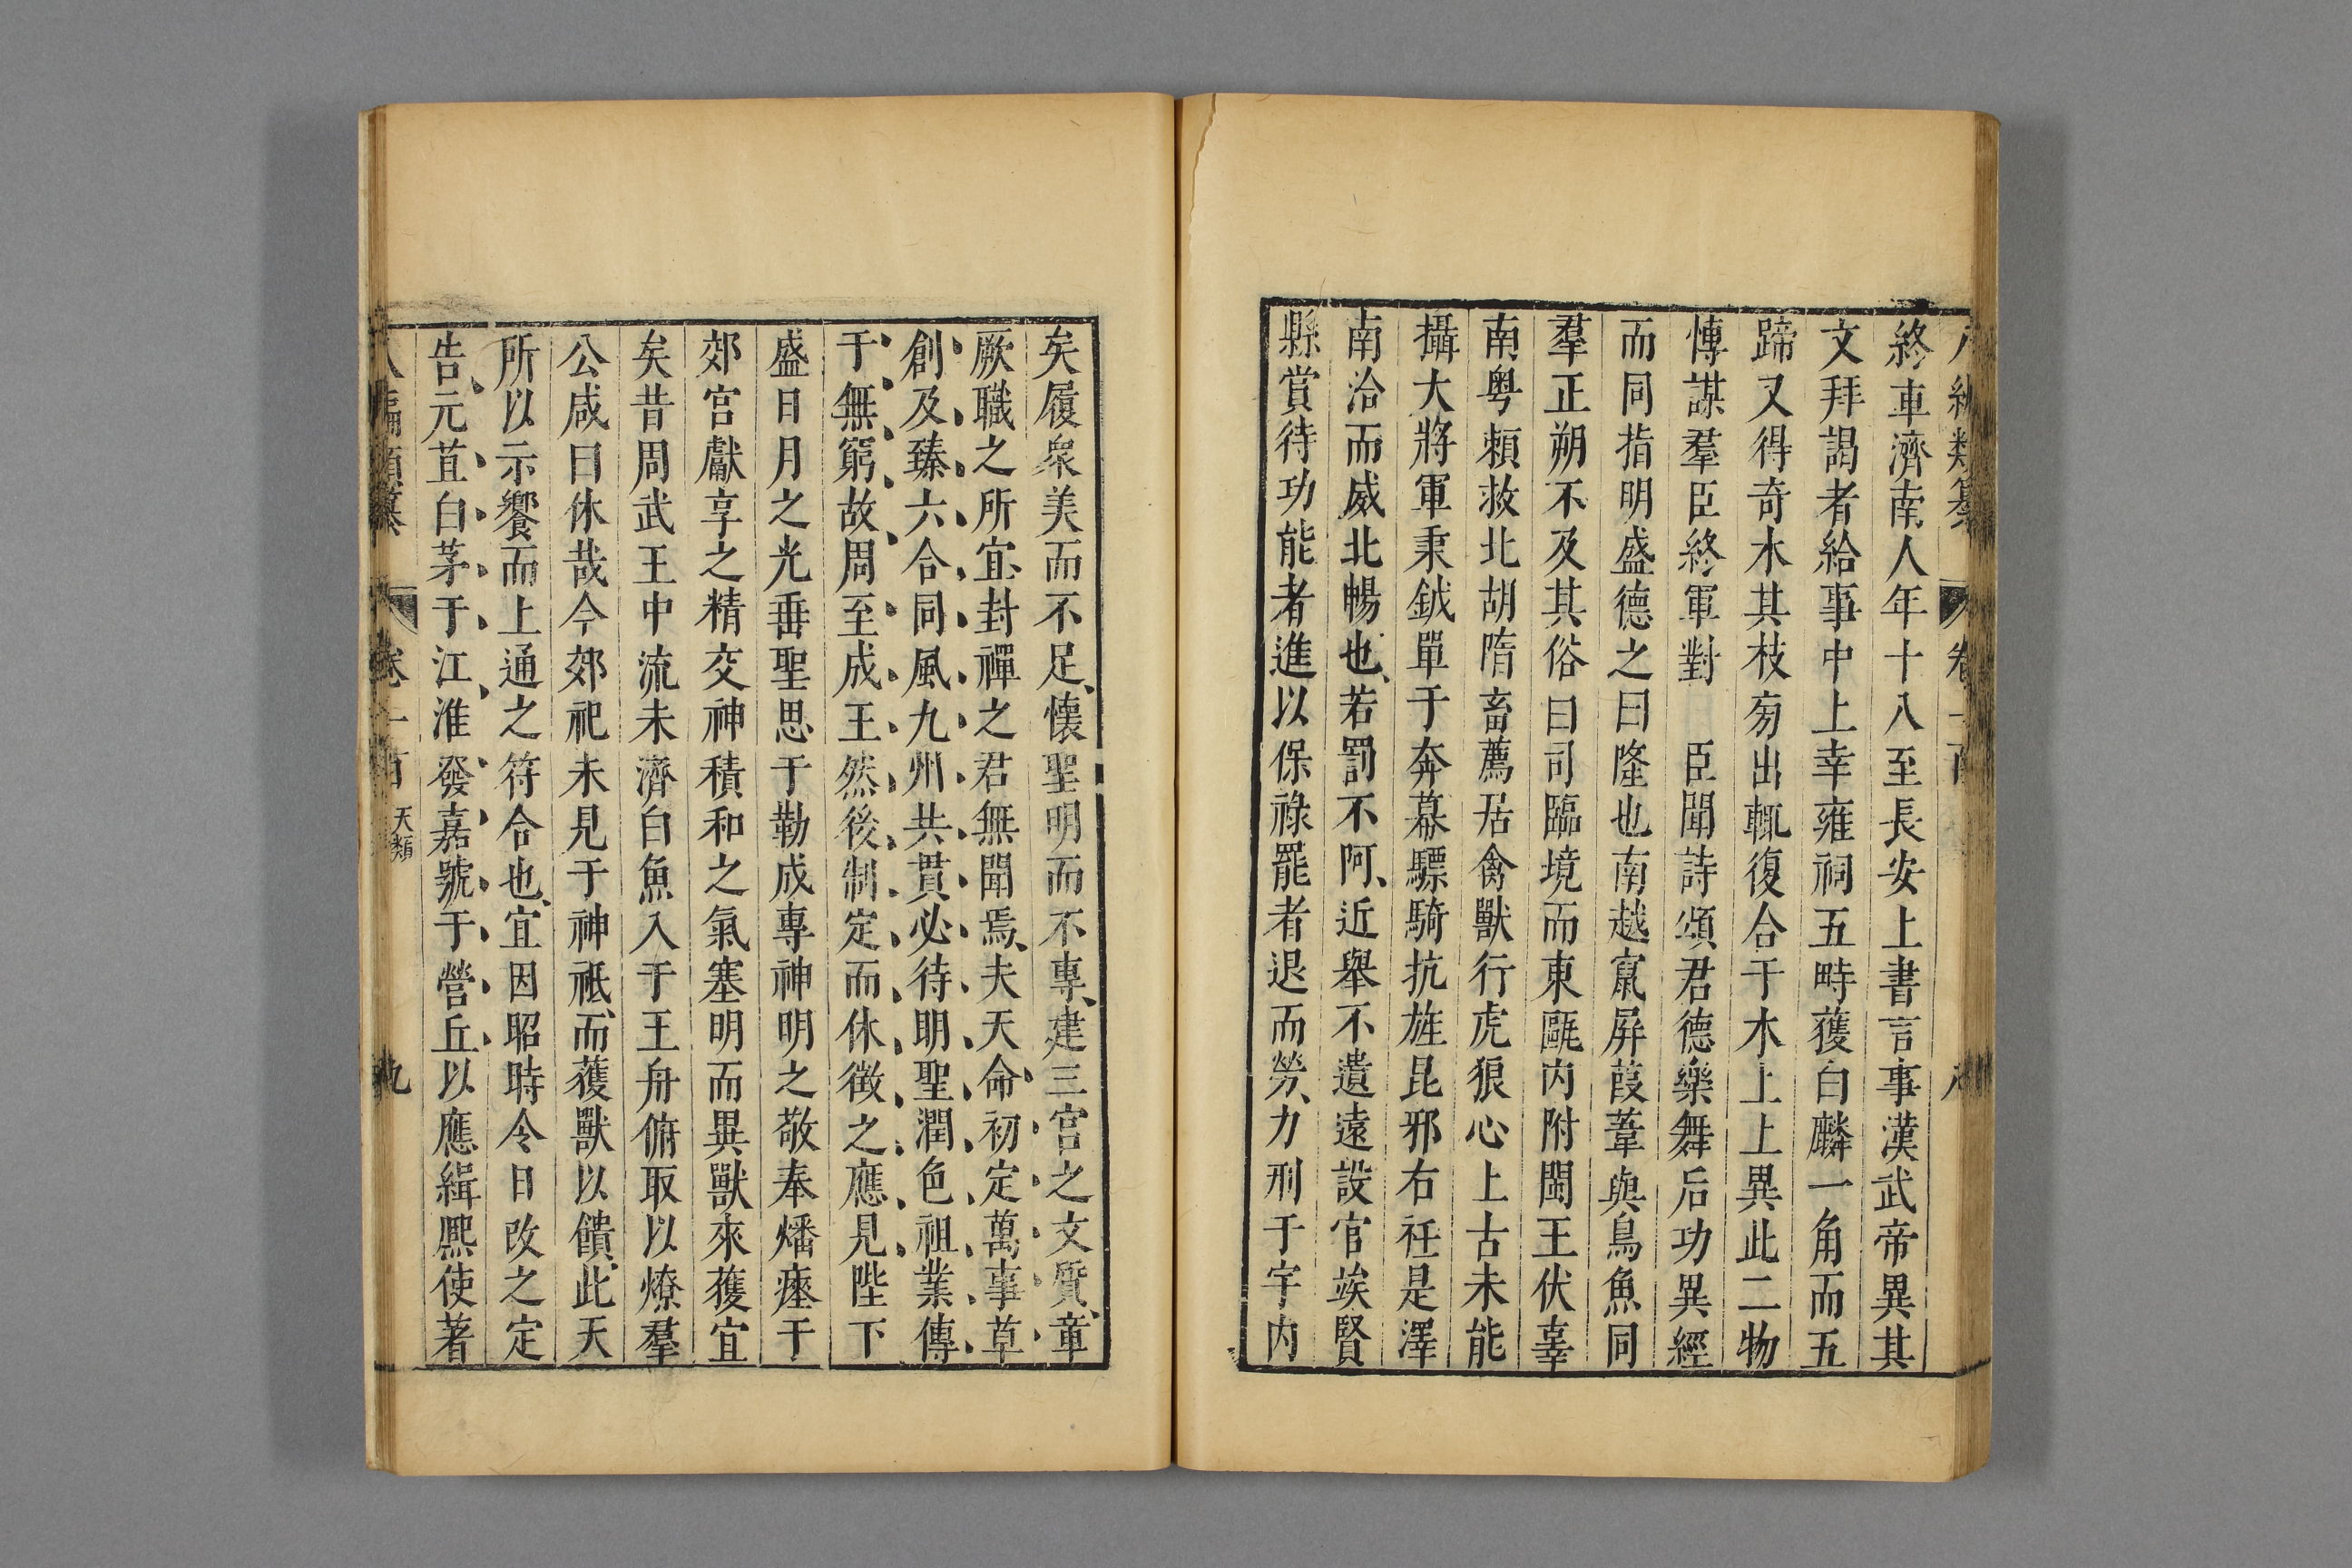 終車濟南人年十八至長安上書言事漢武帝異其
文拜謁者給事中上幸雍祠五畤獲白麟一角而五
蹄又得奇木其枝旁出輒復合于木上上異此二物
慱謀羣臣終軍對　臣聞詩頌君德樂舞后功異經
而同指明盛德之曰隆也南越竄屏葭葦與鳥魚同
羣正朔不及其俗曰司臨境而東甌內附閩王伏辜
南粤賴救北胡隋畜薦居禽獸行虎狼心上古未能
攝大將軍秉鉞單于奔幕驃騎抗旌昆邪右衽是澤
南洽而威北暢也、若罰不阿、近舉不遺遠設官竢賢
縣賞待功能者進以保祿罷者退而勞、力刑于宇內
矣履衆美而不足、懷聖明而不專、建三宮之文質、章
厥職之所宜封禪之君無聞焉、夫天命初定萬事草
創及臻六合同風九州共貫必待明聖潤色祖業傳
于無窮故周至成王然後制定而休徵之應見陛下
盛日月之光垂聖思于勒成專神明之敬奉燔瘞于
郊宮獻享之精交神積和之氣塞明而異獸來獲宜
矣昔周武王中流未濟白魚入于王舟俯取以燎羣
公咸曰休哉今郊祀未見于神祇、而獲獸以饋、此天
所以示饗而上通之符合也、宜因昭時令日改之定
告元苴白茅于江淮發嘉號于營丘以應緝熙使著
八編類纂　卷一百　天類　九